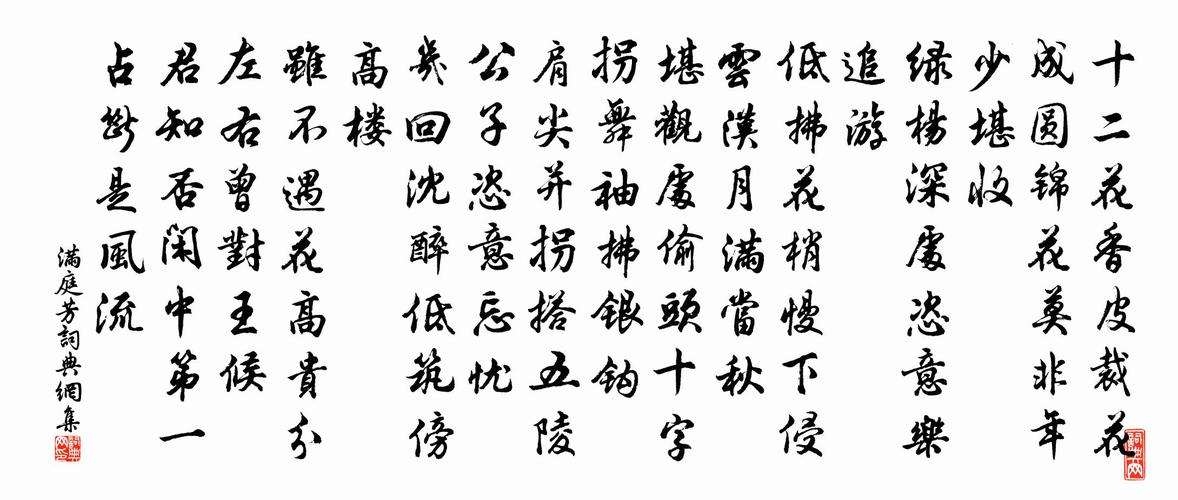 十二花香皮裁花
成圆锦花莫非年
少堪收
绿楊深處恣意樂
追游
低拂花梢慢下侵
雲漢月滿當秋
堪觀處偷頭十字
拐舞袖拂銀鈎
肩尖并拐搭五陵
公子恣意忘忧
幾回沈醉低筑傍
高楼
雖不遇花高貴分
左右曾對王候
君知否閑中第一
占斷是風流
满庭芳詞典網集
詞典网
詞典网印